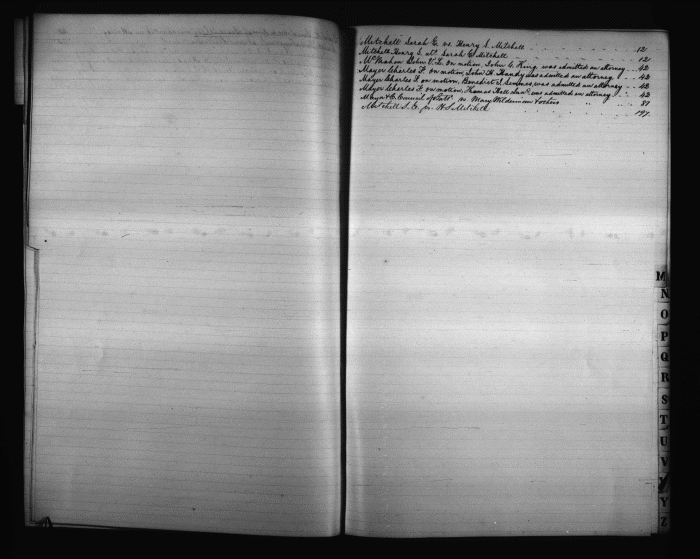 Mitchell Sarah E. vs Henry S. Mitchell 12
Mitchell Henry S. vs. Sarah E. Mitchell 12
McMahon John V. L. on motion, John C. King was admitted an attorney 42
Mayer Charles F. on motion, John H. was admitted an attorney 42
Mayer Charles F. on motion, Benedict J. Semmes, was admitted an attorney 42
Mayer Charles F. on motion, Thomas Hall Junr. was admitted an attorney 42
Mayor & C. Council of Balto vs Mary Wilderman & others 87
Mitchell S. E. vs. H. S. Mitchell 197
M
N
O
P
Q
R
S
T
U
V
Y
Z